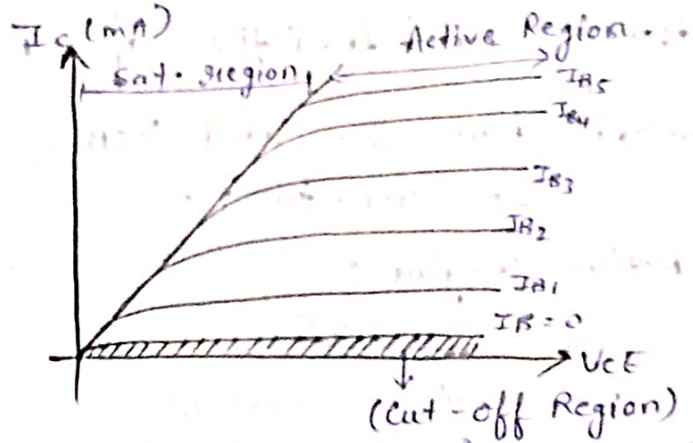 Ic (mA)
Active Region
Sat. region
IB5
IB4
IB3
IB2
IB1
IB = 0
VCE
(Cut-off Region)